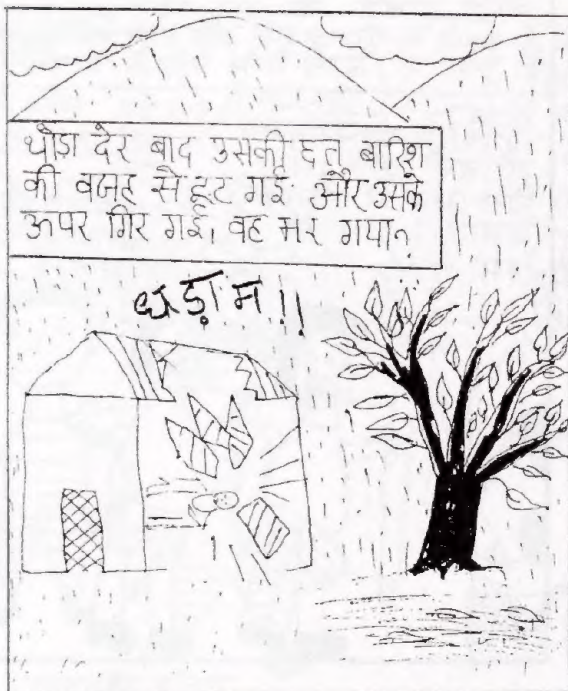 थोडा देर बाद उसकी छत बारिश
की वजह से टूट गई और उसके
ऊपर गिर गई, वह मर गया?
धड़ाम!!